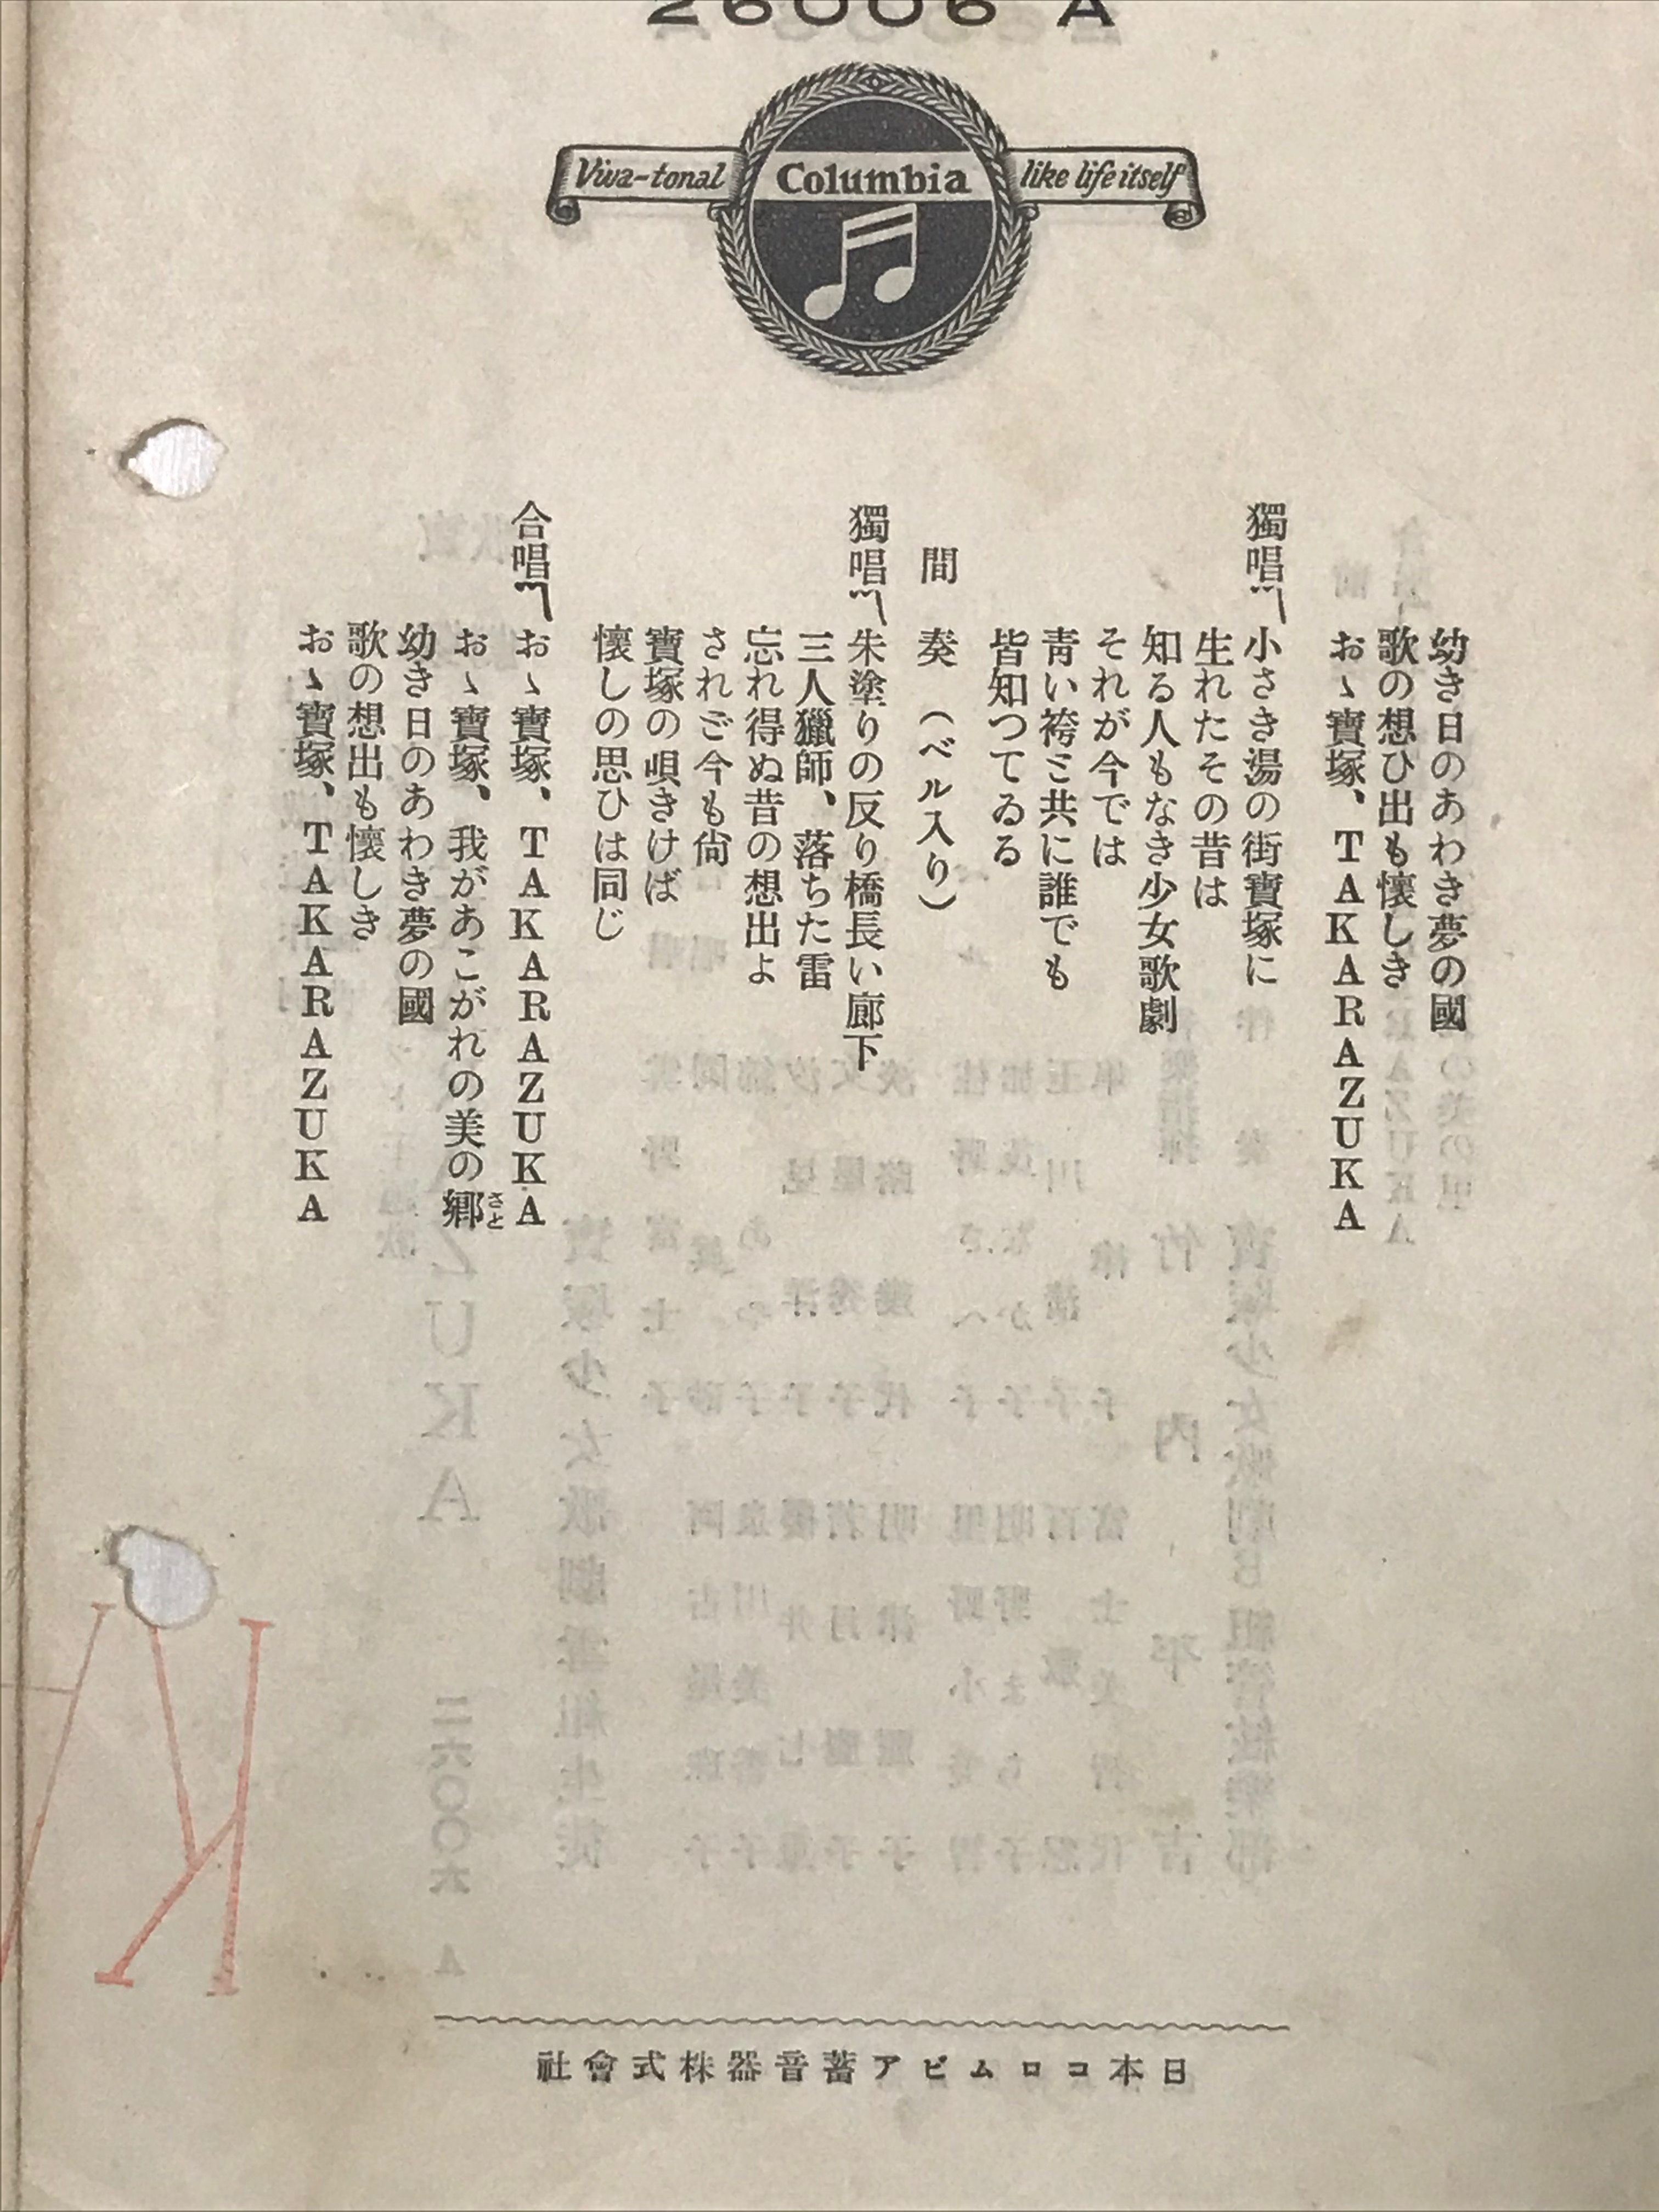 26006 A
Viva-tonal Columbia like life itself
幼き日のあわき夢の國
歌の想ひ出も懷しき
おゝ寶塚、TAKARAZUKA
獨唱 小さき湯の街寶塚に
生れたその昔は
知る人もなき少女歌劇
それが今では
靑い袴と共に誰でも
皆知つてゐる
間奏 (ベル入り)
獨唱 朱塗りの反り橋長い廊下
三人獵師、落ちた雷
忘れ得ぬ昔の想出よ
されど今も尙
寶塚の唄きけば
懷しの思ひは同じ
合唱 おゝ寶塚、TAKARAZUKA
おゝ寶塚、我があこがれの美の鄕さと
幼き日のあわき夢の國
歌の想出も懷しき
おゝ寶塚、TAKARAZUKA
日本コロムビア蓄音器株式會社